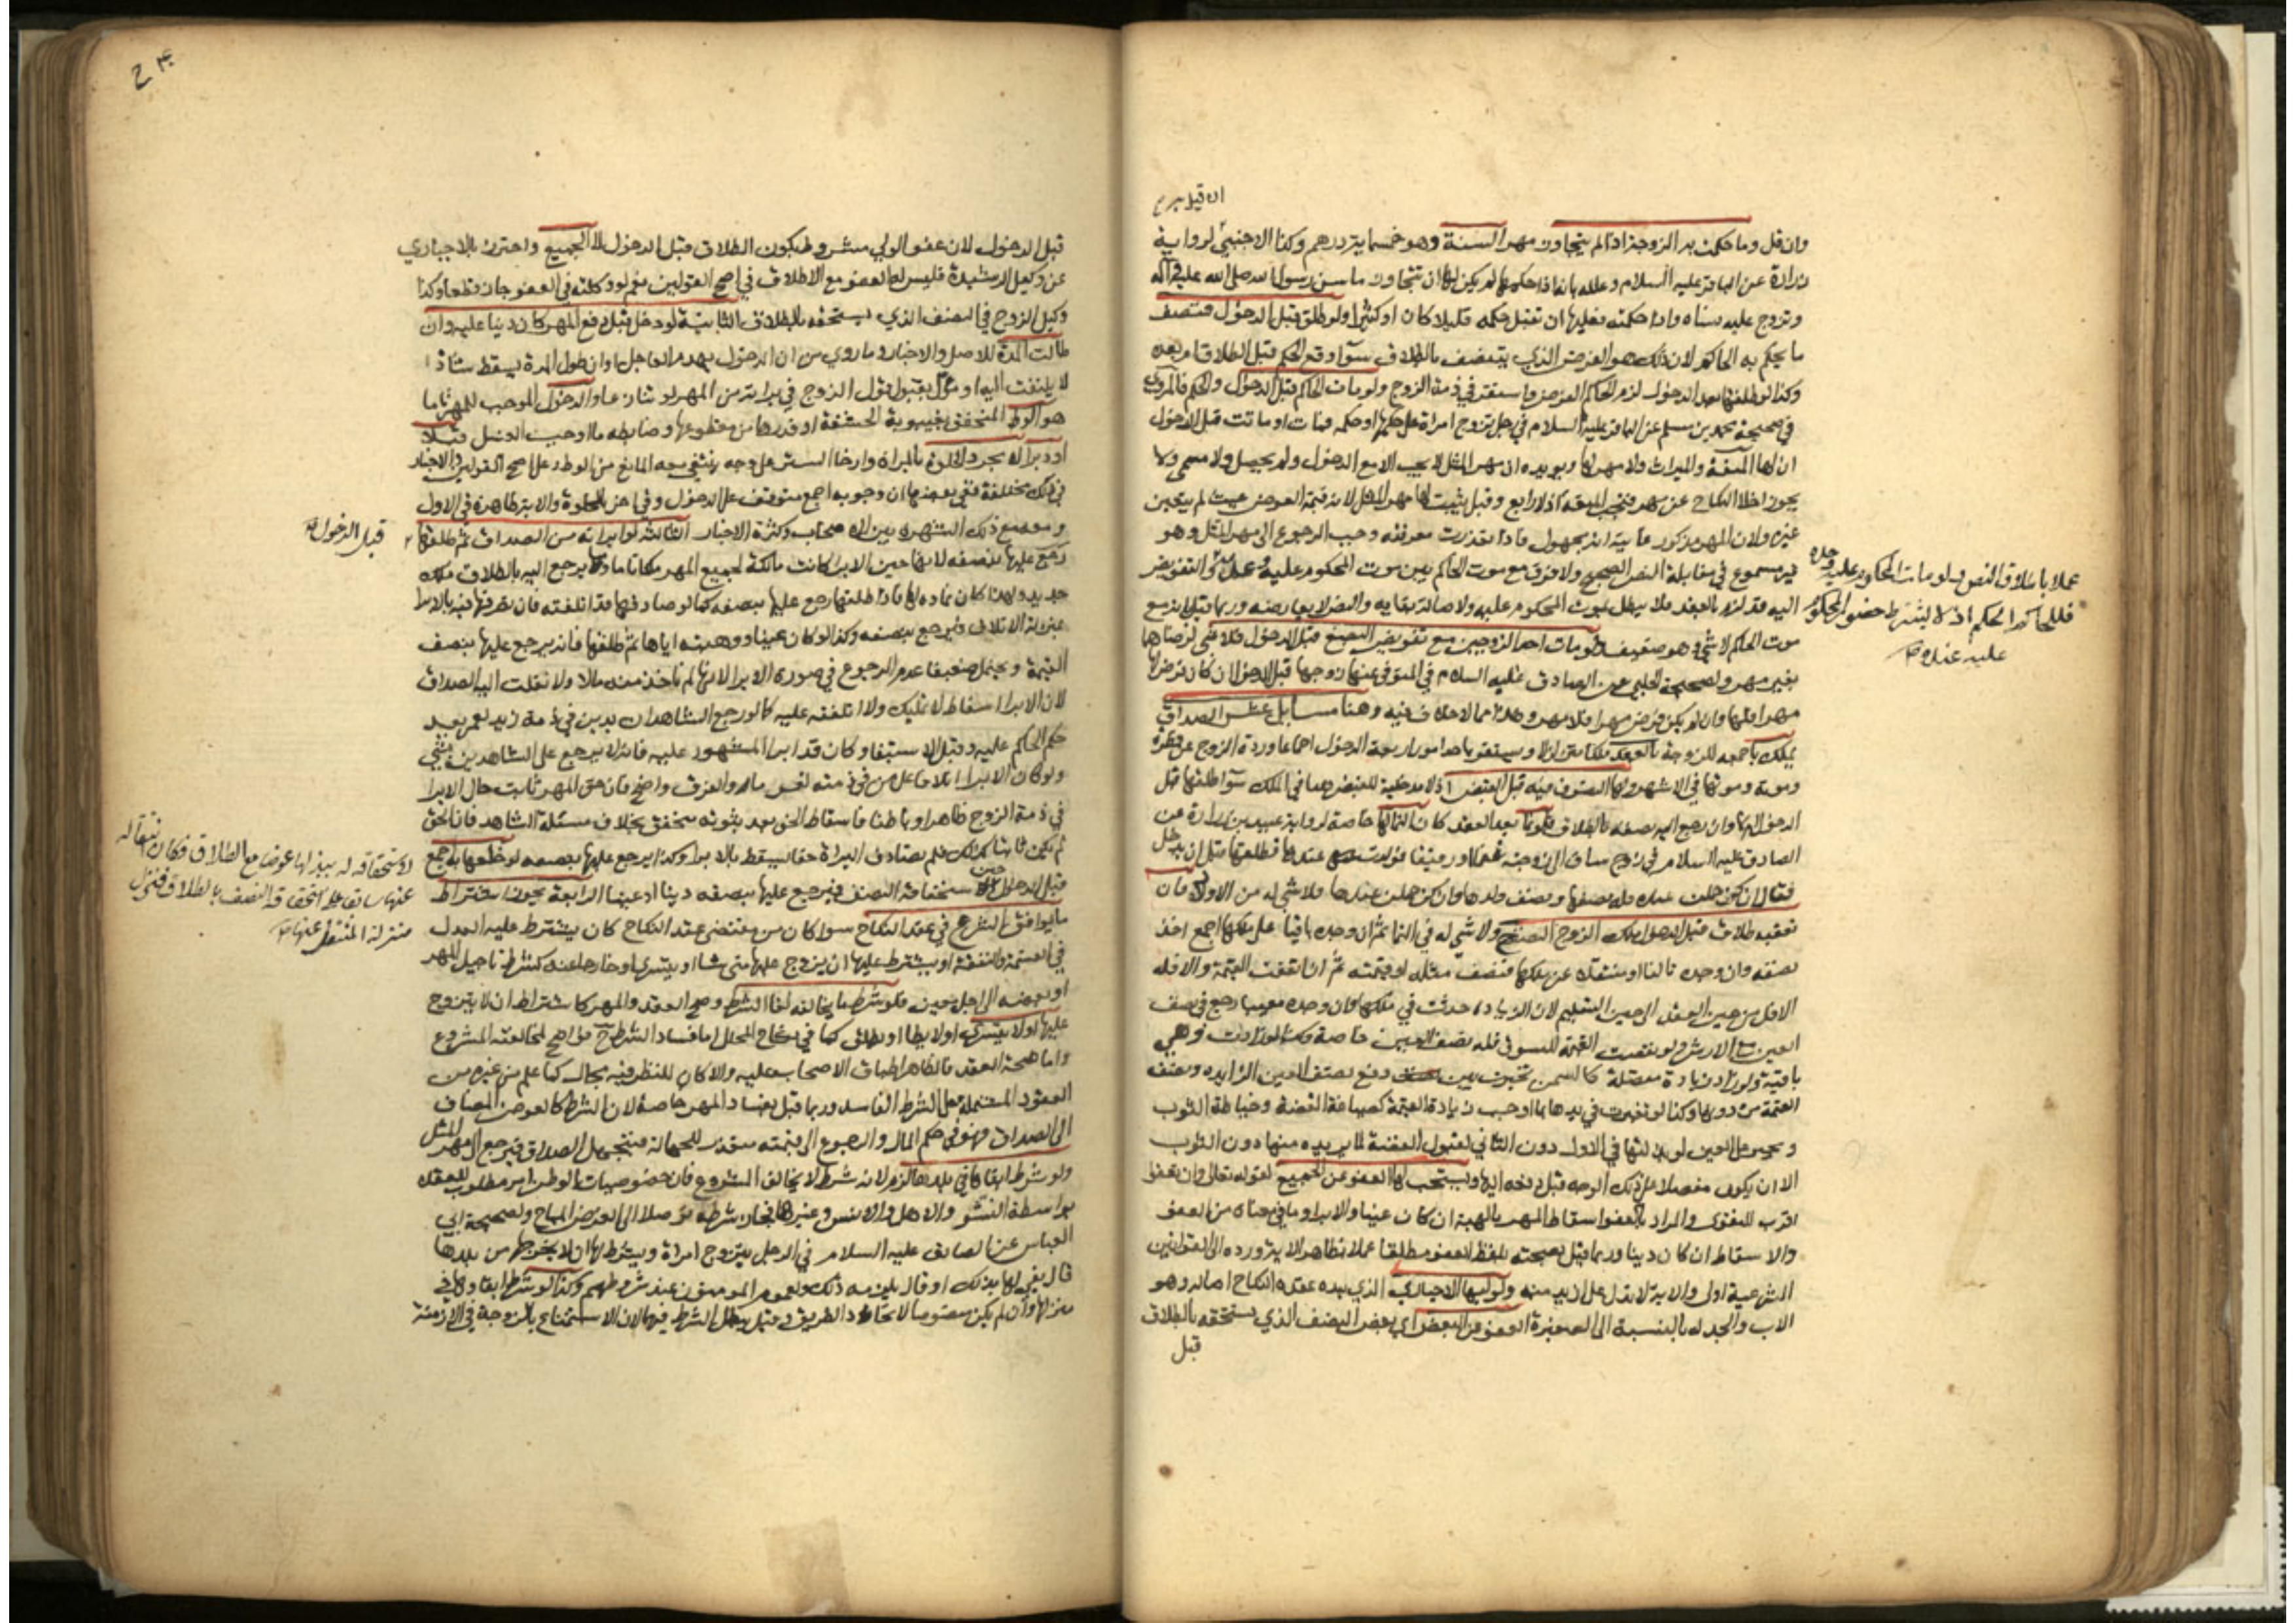 وان قل وما حكمت به الزوجة اذا لم يتجاوز مهر السنة وهو خمسمائة درهم وكذا الاجنبي لرواية
زرارة عن الباقر عليه السلام وعلله بانه اذا حكمها لم يكن لها ان تتجاوز ما سن رسول الله صلى الله عليه وآله
وتزوج عليه نساه واذا حكمته فعليها ان تقبل حكمه قليلا كان او كثيرا ولو طلق قبل الدخول فنصف
ما يحكم به الحاكم لان ذلك هو الفرض الذي يتنصف بالطلاق سوآ وقع الحكم قبل الطلاق ام بعده
وكذا لو طلقها بعد الدخول لزم الحاكم الفرض واستقر في ذمة الزوج ولو مات الحاكم قبل الدخول والحكم فالمروي
في صحيحة محمد بن مسلم عن الباقر عليه السلام في رجل تزوج امراة على حكمها او حكمه فمات او ماتت قبل الدخول
ان لها المتعة والميراث ولا مهر لها ويويده ان مهر المثل لا يجب الا مع الدخول ولم يحصل ولا مسمى ولا
يجوز اخلا النكاح عن مهر فتجب المتعة اذ لا رابع وقيل يثبت لها مهر المثل لانه قيمة العوض حيث لم يتعين
غيره ولان المهر مذكور غايته انه مجهول فاذا تعذرت معرفته وجب الرجوع الى مهر المثل وهو
غير مسموع في مقابلة النص الصحيح ولا فرق مع موت الحاكم بين موت المحكوم عليه وعدمه
اليه قد لزم بالعقد فلا يبطل بموت المحكوم عليه ولاصالة بقايه والنص لا يعارضه وربما قيل بانه مع
موت الحاكم لا شي وهو ضعيف ولو مات احد الزوجين مع تفويض البضع قبل الدخول فلا شي لرضاها
بغير مهر ولصحيحة الحلبي عن الصادق عليه السلام في المتوفى عنها زوجها قبل الدخول ان كان فرض لها
مهرا فلها وان لم يكن فرض مهرا فلا مهر وهذا مما لا خلاف فيه وهنا مسايل عشر الصداق
يملك باجمعه للزوجة بالعقد ملكا متزلزلا ويستقر باحد امور اربعة الدخول اجماعا وردة الزوج عن فطرة
وموته وموتها في الاشهر ولها التصرف فيه قبل القبض اذ لا مدخلية للقبض هنا في الملك سوآ طلقها قبل
الدخول ام لا وان رجع اليه نصفه بالطلاق فلو نما بعد العقد كان النما لها خاصة لرواية عبيد بن زرارة عن
الصادق عليه السلام في زوج ساق الى زوجته غنما ورقيقا فولدت عندها فطلقها قبل ان يدخل
فقال ان كن حملت عنده فله نصفها ونصف ولدها وان كن حملن عندها فلا شي له من الاولاد فان
تعقبه طلاق قبل الدخول ملك الزوج النصف ولا شي له في النما ثم ان وجده باقيا على ملكها اجمع اخذ
نصفه وان وجده تالفا او منتقلا عن ملكها فنصف مثله او قيمته ثم ان اتفقت القيمة والا فله
الاقل من حين العقد الى حين التسليم لان الزيادة حدثت في ملكها وان وجده معيبا رجع في نصف
العين مع الارش ولو نقصت القيمة للسوق فله نصف العين خاصة وكذا لو زادت وهي
باقية ولو زاد زيادة متصلة كالسمن تخيرت بين دفع نصف العين الزايده ونصف
القيمة من دونها وكذا لو تغيرت في يدها بما اوجب زيادة القيمة كصياغة الفضة وخياطة الثوب
ويجبر على العين لو بذلتها في الاول دون الثاني لقبول الفضة لما يريده منها دون الثوب
الا ان يكون مفصلا على ذلك الوجه قبل دفعه اليها ويستحب لها العفو عن الجميع لقوله تعالى وان تعفوا
اقرب للتقوى والمراد بالعفو اسقاط المهر بالهبة ان كان عينا والابراء وما في معناه من العفو
والاسقاط ان كان دينا وربما قيل بصحته بلفظ العفو مطلقا عملا بظاهر الاية ورده الى القوانين
الشرعية اولى والاية لا تدل على ازيد منه ولوليها الاجباري الذي بيده عقدة النكاح اصالة وهو
الاب والجد له بالنسبة الى الصغيرة العفو عن البعض اي بعض النصف الذي يستحقه بالطلاق
قبل
عملا باطلاق النص ولو مات المحكوم عليه وحده
فللحاكم الحكم اذ لا يشترط حضور المحكوم
عليه عنده
قبل الدخول لان عفو الولي مشروط بكون الطلاق قبل الدخول لا الجميع واحترز بالاجباري
عن وكيل الرشيدة فليس له العفو مع الاطلاق في اصح القولين نعم لو وكلته في العفو جاز قطعا وكذا
وكيل الزوج في النصف الذي يستحقه بالطلاق الثانية لو دخل قبل دفع المهر كان دينا عليه وان
طالت المدة للاصل والاخبار وما روي من ان الدخول يهدم العاجل او ان طول المدة يسقط شاذ
لا يلتفت اليه او مأول بقبول قول الزوج في براءته من المهر لو تنازعا والدخول الموجب للمهر تاما
هو الوطء المتحقق بغيبوبة الحشفة او قدرها من مقطوعها وضابطه ما اوجب الغسل قبلا
او دبرا لا مجرد الخلوة بالمراة وارخاء الستر على وجه ينتفي معه المانع من الوطء على اصح القولين والاخبار
في ذلك مختلفة ففي بعضها ان وجوبه اجمع متوقف على الدخول وفي اخر بالخلوة والاية ظاهرة في الاول
ومعه مع ذلك الشهرة بين الاصحاب وكثرة الاخبار الثالثة لو ابراته من الصداق ثم طلقها
رجع عليها بنصفه لانها حين الابراء كانت مالكة لجميع المهر ملكا تاما وما يرجع اليه بالطلاق ملك
جديد ولهذا كان نماؤه لها فاذا طلقها رجع عليها بنصفه كما لو صادفها قد اتلفته فان تصرفها فيه بالابراء
بمنزلة الاتلاف فيرجع بنصفه وكذا لو كان عينا ووهبته اياها ثم طلقها فانه يرجع عليها بنصف
القيمة ويحتمل ضعيفا عدم الرجوع في صورة الابراء لانها لم تاخذ منه مالا ولا نقلت اليه الصداق
لان الابراء اسقاط لا تمليك ولا اتلفته عليه كما لو رجع الشاهدان بدين في ذمة زيد لعمرو بعد
حكم الحاكم عليه وقبل الاستيفاء وكان قد ابرا المشهود عليه فانه لا يرجع على الشاهدين بشي
ولو كان الابراء اتلافا على من في ذمته لغرما له والفرق واضح فان حق المهر ثابت حال الابراء
في ذمة الزوج ظاهرا وباطنا فاسقاط الحق بعد ثبوته متحقق بخلاف مسئلة الشاهد فان الحق
لم يكن ثابتا كذلك فلم تصادف البراة حقا يسقط بالابراء وكذا يرجع عليها بنصفه لو خلعها به اجمع
قبل الدخول لاستحقاقه النصف فيرجع عليها بنصفه دينا او عينا الرابعة يجوز اشتراط
ما يوافق الشرع في عقد النكاح سوا كان من مقتضى عقد النكاح كان يشترط عليه العدل
في القسمة والنفقة او يشترط عليها ان يتزوج عليها متى شاء او يتسرى او خارجا عنه كشرط تاجيل المهر
او بعضه الى اجل معين فلو شرط ما يخالفه لغا الشرط وصح العقد والمهر كاشتراط ان لا يتزوج
عليها او لا يتسرى او لا يطا او يطلق كما في نكاح المحلل اما فساد الشرط ح فواضح لمخالفته المشروع
واما صحة العقد فالظاهر اطباق الاصحاب عليه والا كان للنظر فيه مجال كما علم من غيره من
العقود المشتملة على الشرط الفاسد وربما قيل بفساد المهر خاصة لان الشرط كالعوض المضاف
الى الصداق فهو في حكم المال والرجوع الى قيمته متعذر للجهالة فيجهل الصداق فيرجع الى مهر المثل
ولو شرط ابقاءها في بلدها لزم لانه شرط لا يخالف المشروع فان خصوصيات الوطن امر مطلوب للعقلاء
بواسطة النشو والاهل والانس وغيرها فجاز شرطه توصلا الى الغرض المباح ولصحيحة ابي
العباس عن الصادق عليه السلام في الرجل يتزوج امراة ويشترط لها ان لا يخرجها من بلدها
قال يفي لها بذلك او قال يلزمه ذلك ولعموم المومنون عند شروطهم وكذا لو شرط ابقاءها في
منزلها وان لم يكن منصوصا لاتحاد الطريق وقيل يبطل الشرط فيهما لان الاستمتاع بالزوجة في الازمنة
قبل الدخول
لاستحقاقه له ببذلها عوضا مع الطلاق فكان انتقاله
عنها سابقا على استحقاقه النصف بالطلاق فينزل
منزلة المنتقل عنها